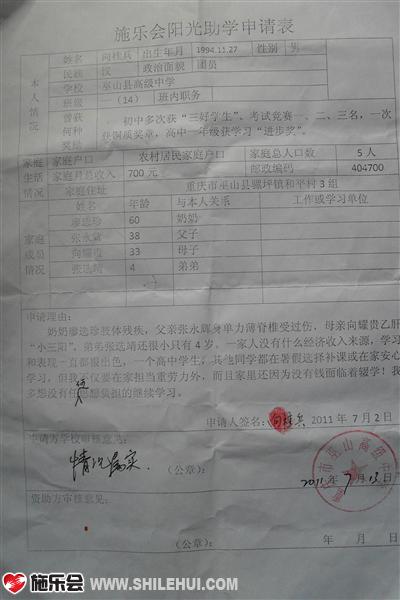 施乐会阳光助学申请表
本人情况
姓名 向桂兵 出生年月 1994.11.27 性别 男
民族 汉 政治面貌 团员
学校 巫山县高级中学
班级 (14) 班内职务
曾获何种奖励 初中多次获"三好学生"、考试竞赛一、二、三名,一次获铜质奖章,高中一年级获学习"进步奖"。
家庭生活情况
家庭户口 农村居民家庭户口 家庭总人口数 5人
家庭月总收入 700元 邮政编码 404700
家庭住址 重庆市巫山县骡坪镇和平村3组
家庭成员情况
姓名 年龄 与本人关系 工作或学习单位
廖选珍 60 奶奶
张永辉 38 父子
向耀贵 33 母子
张迋靖 4 弟弟
申请理由:
奶奶廖选珍肢体残疾,父亲张永辉身单力薄脊椎受过伤,母亲向耀贵乙肝
"小三阳",弟弟张迋靖还很小只有4岁。一家人没有什么经济收入来源,学习
和表现一直都很出色,一个高中学生,其他同学都在暑假选择补课或在家安心
学习,但我不仅要在家担当重劳力外,而且家里还因为没有钱面临着辍学!我
多想没有任何思想负担的继续学习。
申请人签名: 向桂兵 2011年7月2日
申请方学校审核意见:
情况属实
(公章): 2011年7月13日
巫山高级中学
资助方审核意见:
(公章): 年 月 日
施乐会 WWW.SHILEHUI.COM